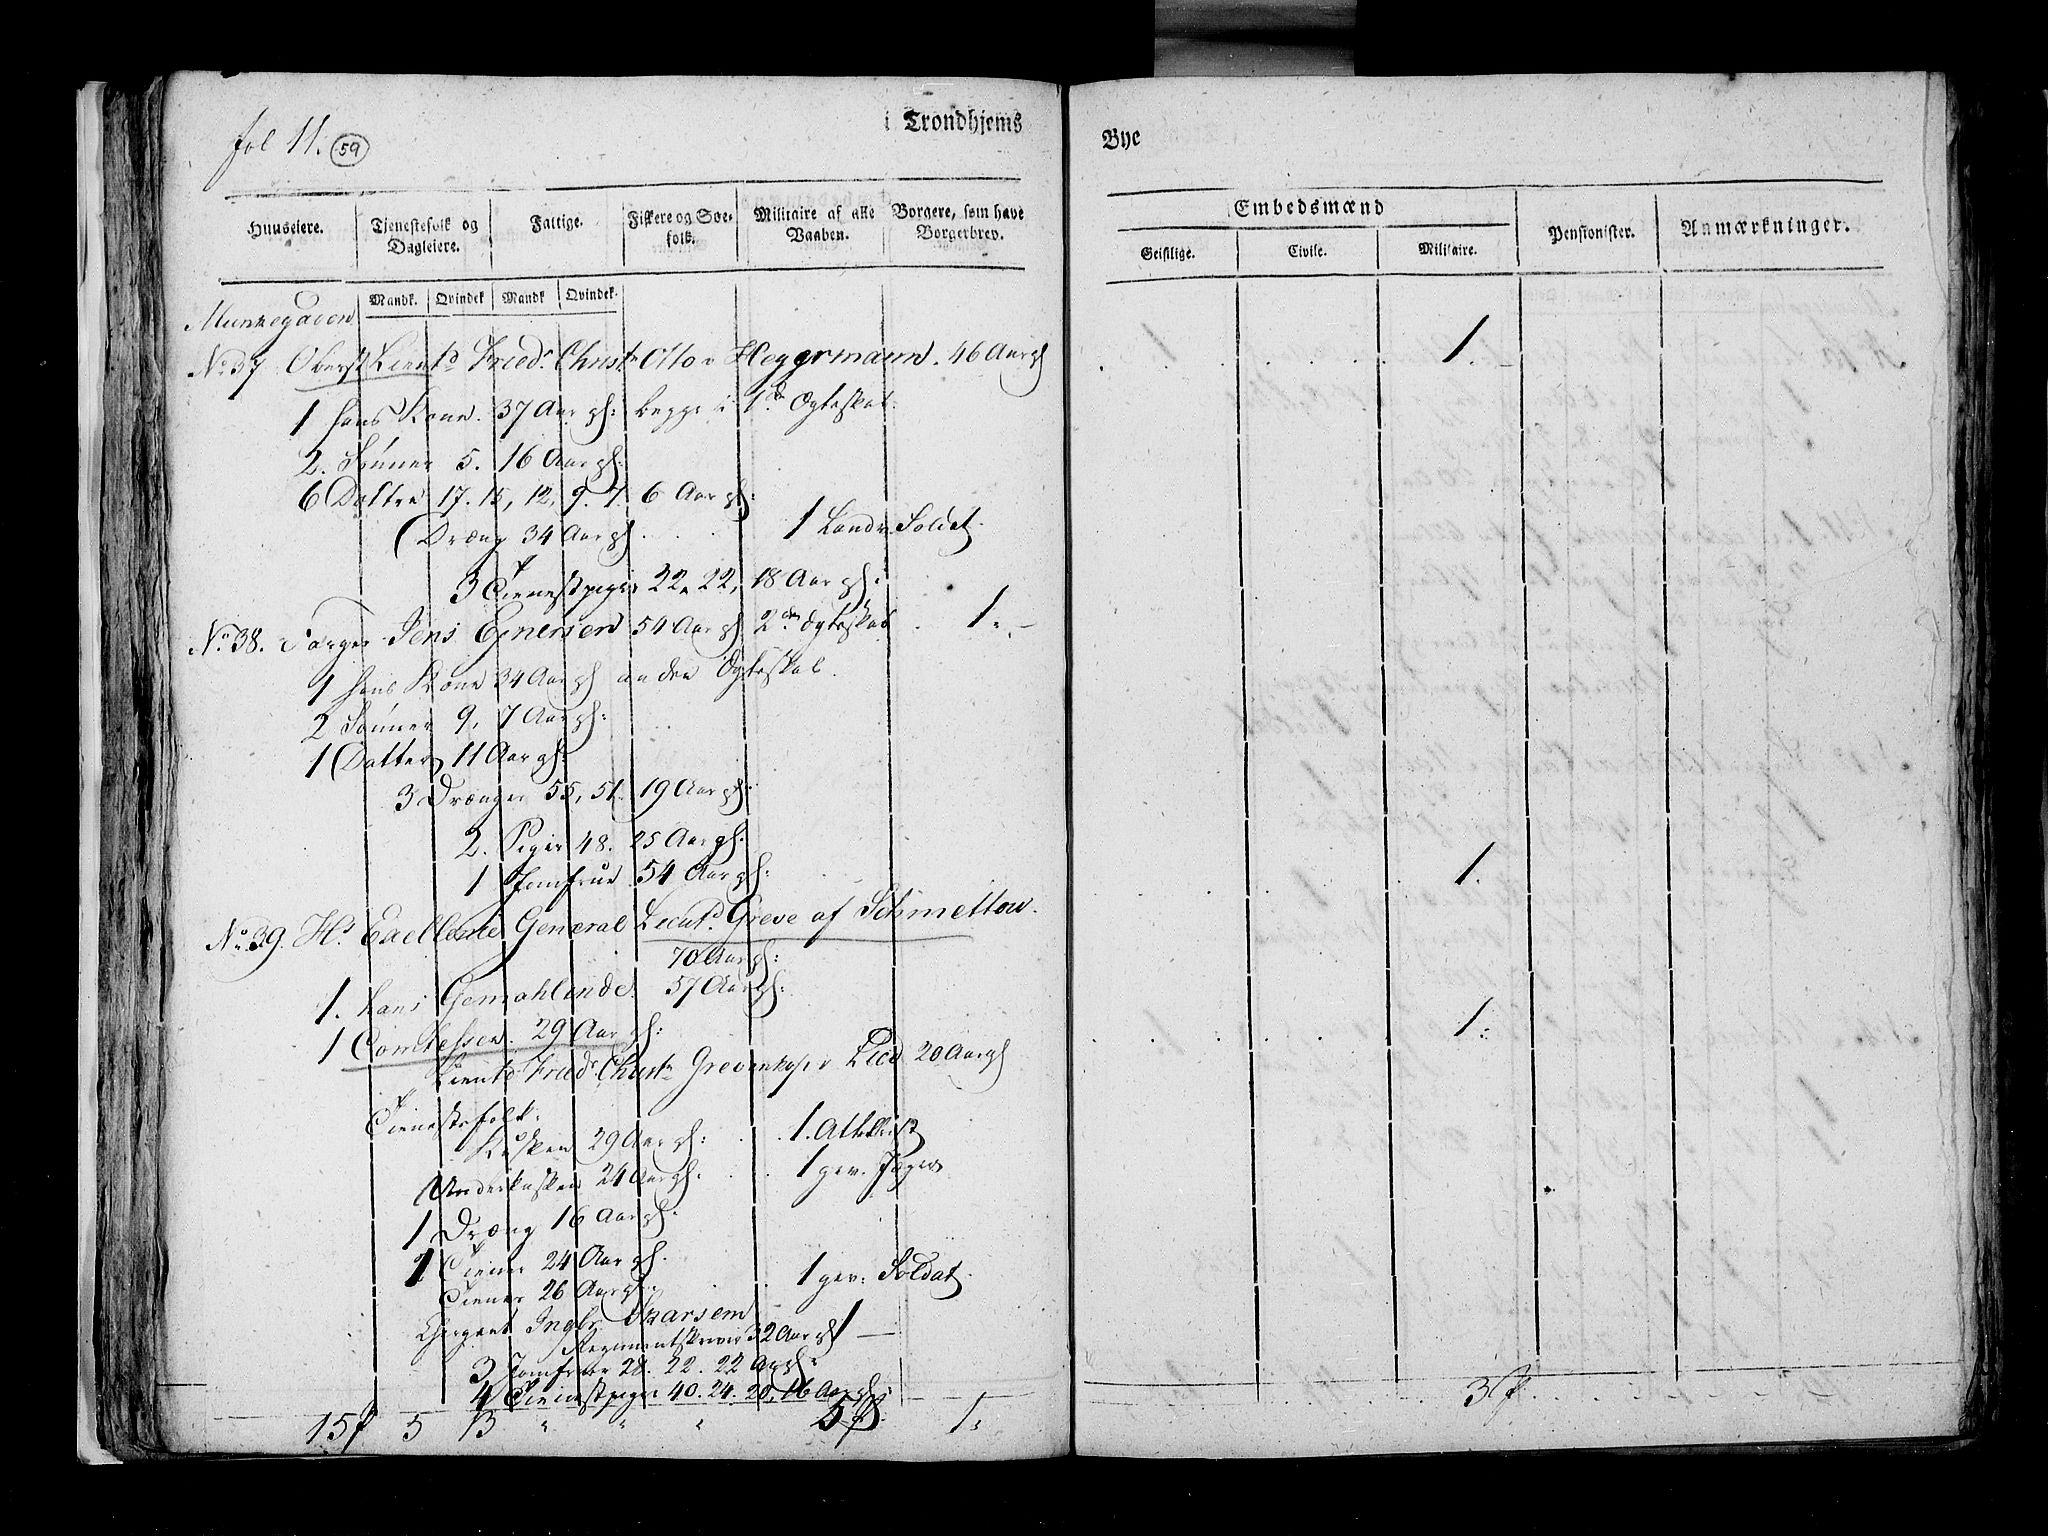 fol 11. 59
i Trondhjems
Bye
Huuseiere. Tjenestefolk og Dagleiere. Fattige. Fiskere og Søefolk. Militaire af alle Vaaben. Borgere, som have Borgerbrev.
Embedsmænd
Geistlige. Civile. Militaire. Pensionister. Anmærkninger.
Mandk. Qvindek Mandk Qvindek.
Munkegaden
No 37 Oberst Lieut. Fried. Christ Otto v Heggermann. 46 Aar gl 1.
1 hans Kone. 37 Aar gl: begge i 1. Ægteskab.
2. Sønner 5. 16 Aar gl:
6 Dottre 17. 15, 12, 9. 7. 6 Aar gl:
Dræng 34 Aar gl 1 Landv. Soldat.
3 Tienestpiger 22. 22, 18 Aar gl:
No 38. Jens 54 Aar gl 2 Ægteskab 1.
1 hans Kone 34 Aar gl anden Ægteskab.
2 Sønner 9, 7 Aar gl:
1 Datter 11 Aar gl:
3 Drænger 55, 51. 19 Aar gl:
2. Piger 48. 25 Aar gl:
1 Jomfrue 54 Aar gl:
No 39. Hs Excellence General Lieut. Greve af Schmettow. 1.
70 Aar gl:
1. hans Gemahlinde. 57 Aar gl:
1 Comtessen. 29 Aar gl:
Lieut Fried. Christ. Grevenkop v 20 Aar gl 1:
Tienestefolk:
Kusken 29 Aar gl: 1.
Underkusken 24 Aar gl: 1 gev. Jæger
1 Dræng 16 Aar gl:
1 Tiener 24 Aar gl.
Tiener 26 Aar gl: 1 gev: Soldat.
Ingbr. Skarsem
Regimentskriver 32 Aar gl 1
3 Jomfruer 28. 22. 22 Aar gl:
4 Tienestpiger 40. 24. 20, 16 Aar gl:
15 5 13 " " " 5 1. 3